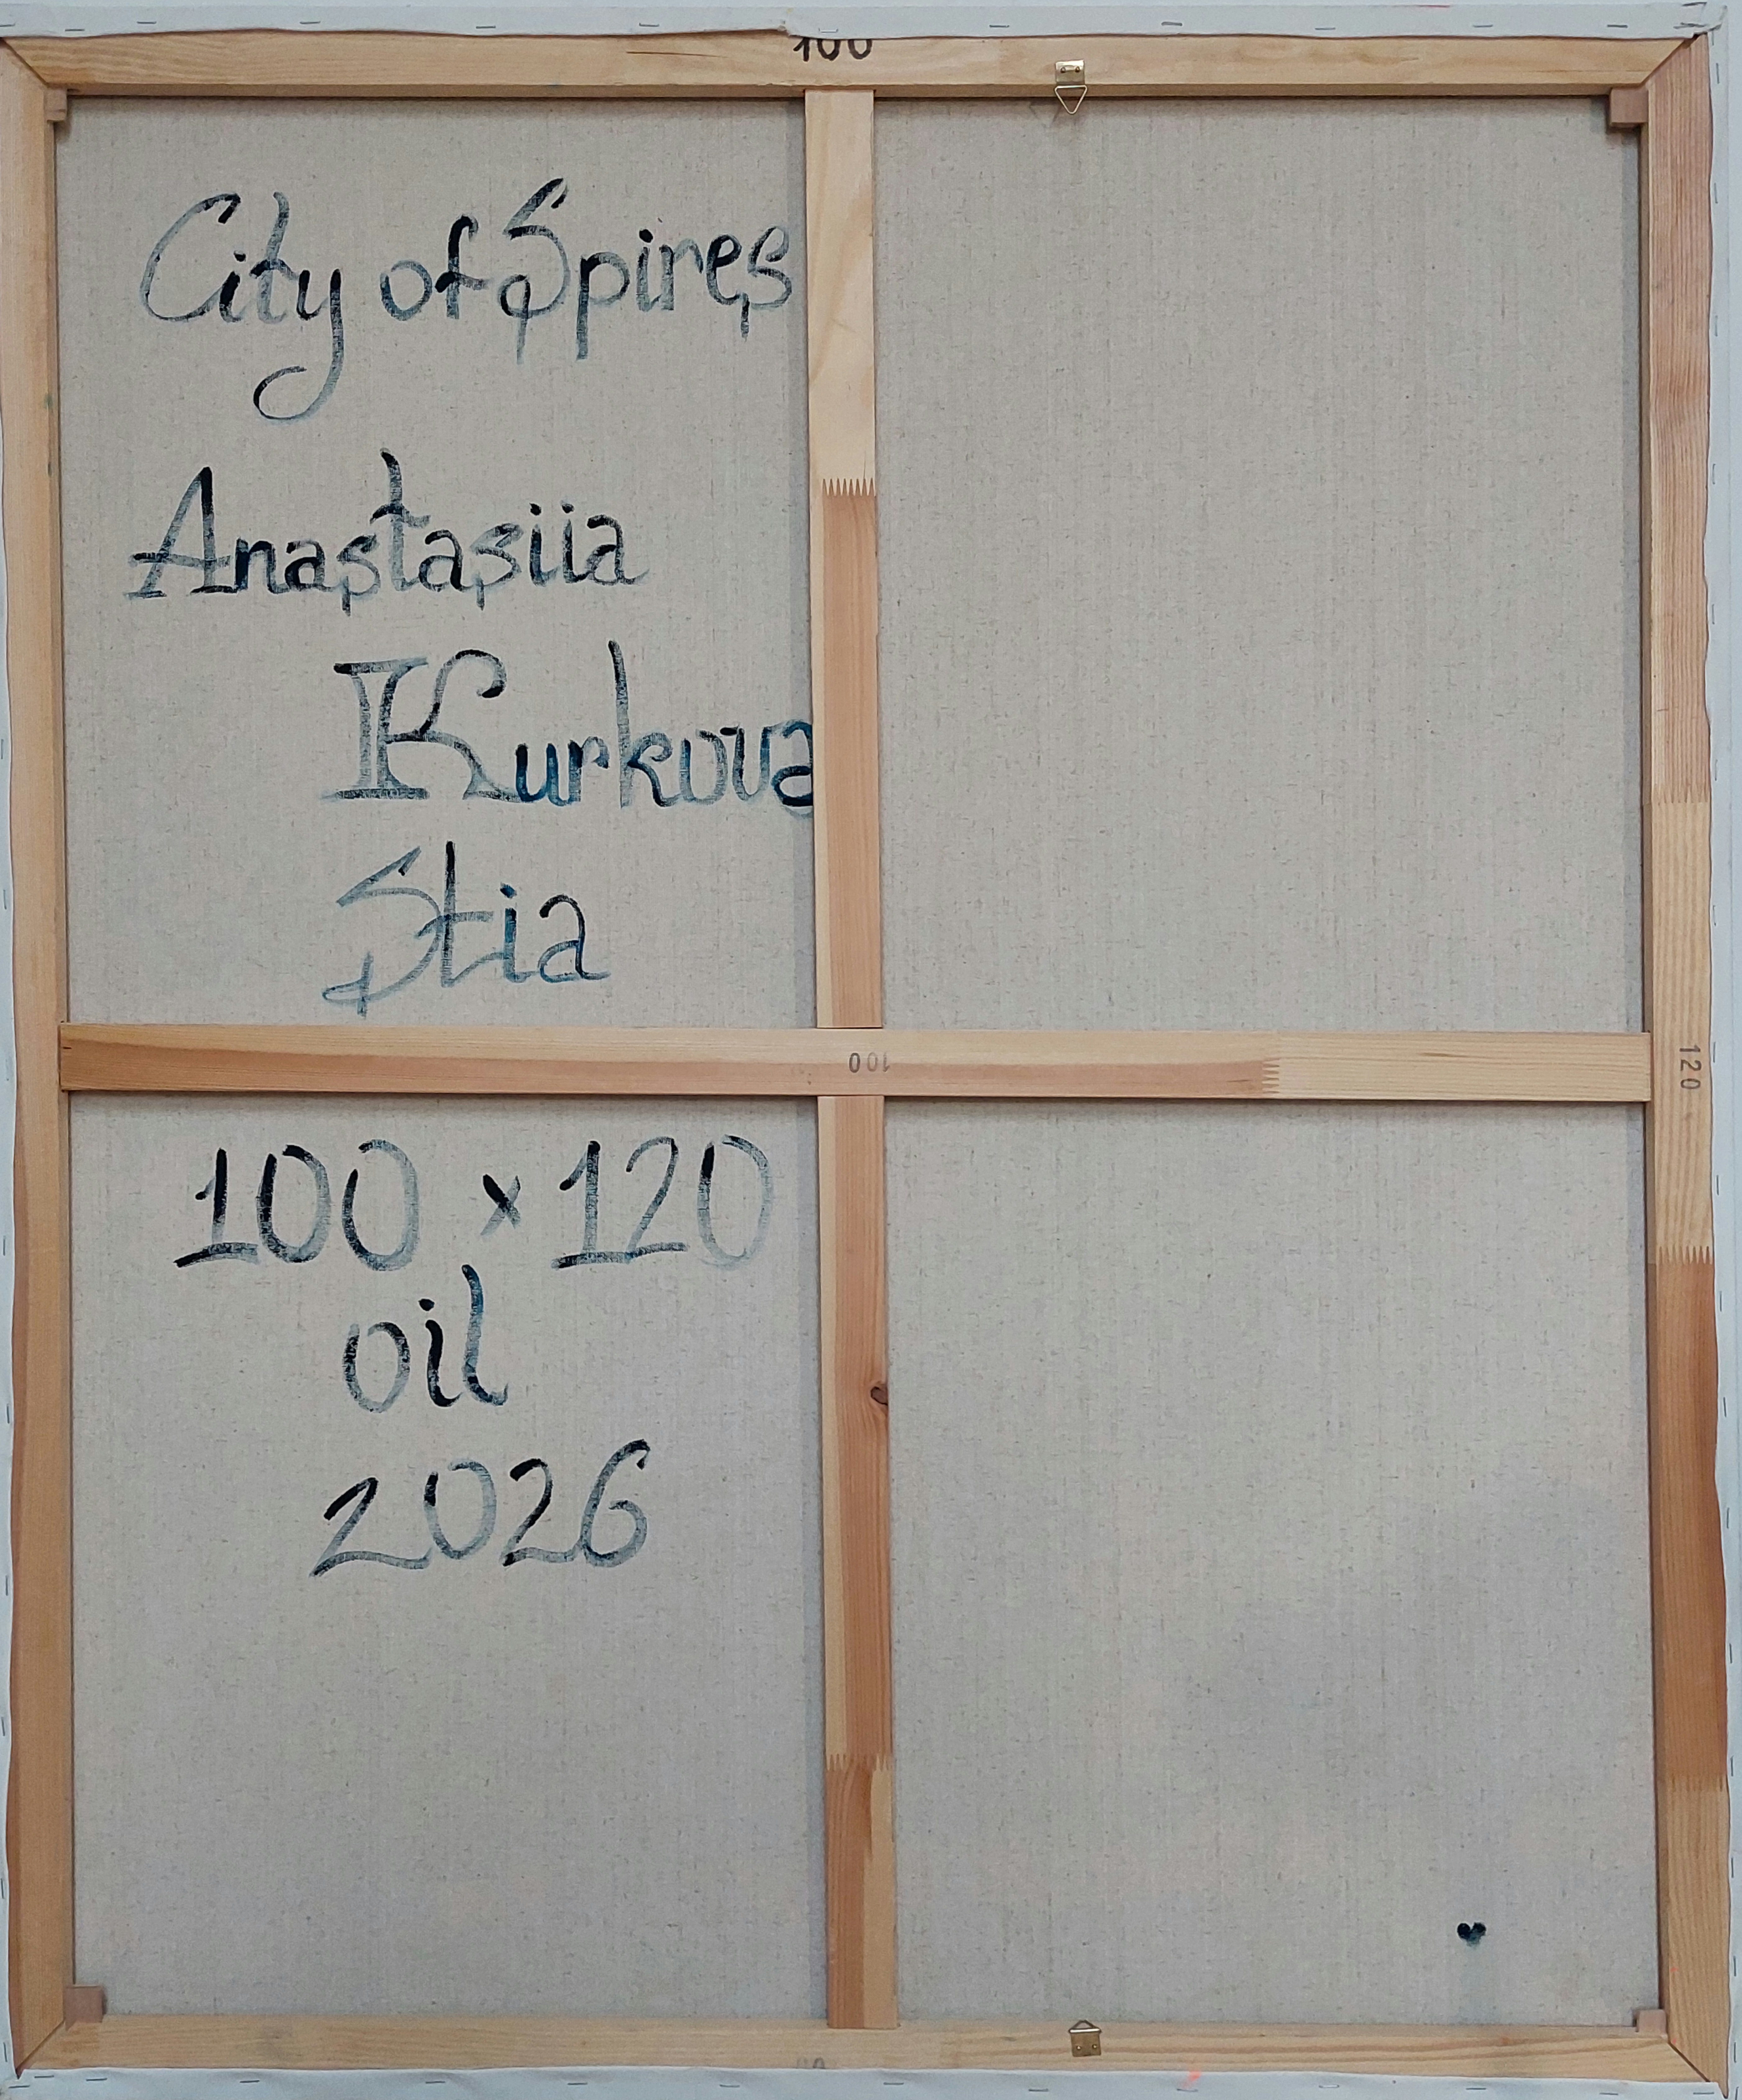 100
City of Spires
Anastasiia
Kurkova
Stia
100
120
100 × 120
oil
2026